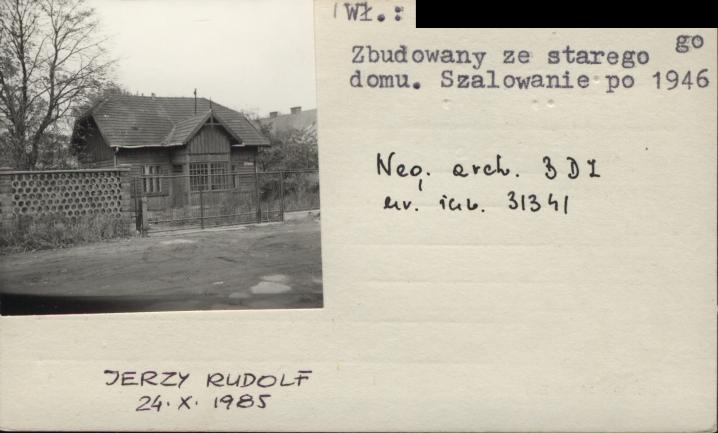 Wł.:
go
Zbudowany ze starego
domu. Szalowanie po 1946
Neg. arch. BDZ
nr. inw. 31341
JERZY RUDOLF
24. X. 1985